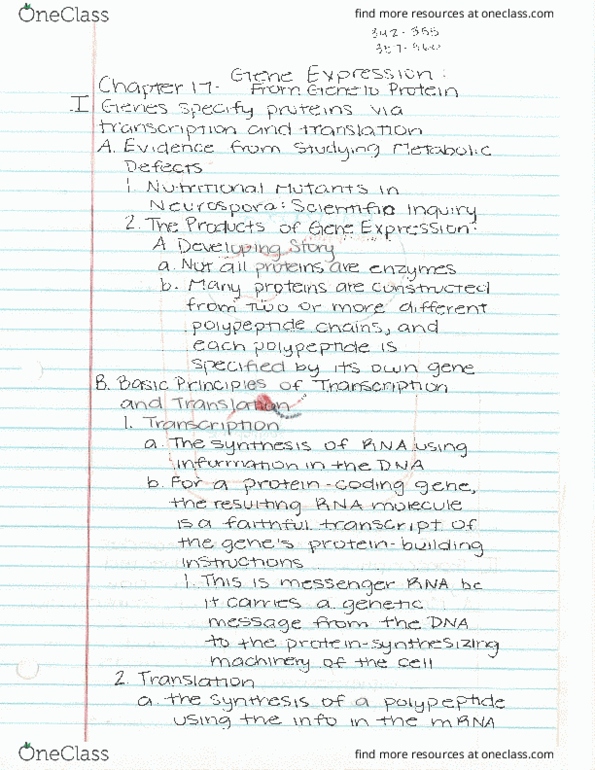 OneClass
find more resources at oneclass.com
342-355
357-360
Gene Expression:
Chapter 17- From Gene to Protein
I Genes specify proteins via
transcription and translation
A. Evidence from Studying Metabolic
Defects
1. Nutritional Mutants in
Neurospora: Scientific Inquiry
2. The Products of Gene Expression:
A Developing Story
a. Not all proteins are enzymes
b. Many proteins are constructed
from two or more different
polypeptide chains, and
each polypeptide is
specified by its own gene
B. Basic Principles of Transcription
and Translation
1. Transcription
a. The synthesis of RNA using
information in the DNA
b. For a protein-coding gene,
the resulting RNA molecule
is a faithful transcript of
the gene's protein-building
instructions
1. This is messenger RNA bc
it carries a genetic
message from the DNA
to the protein-synthesizing
machinery of the cell
2. Translation
a. the synthesis of a polypeptide
using the info in the mRNA
OneClass
find more resources at oneclass.com